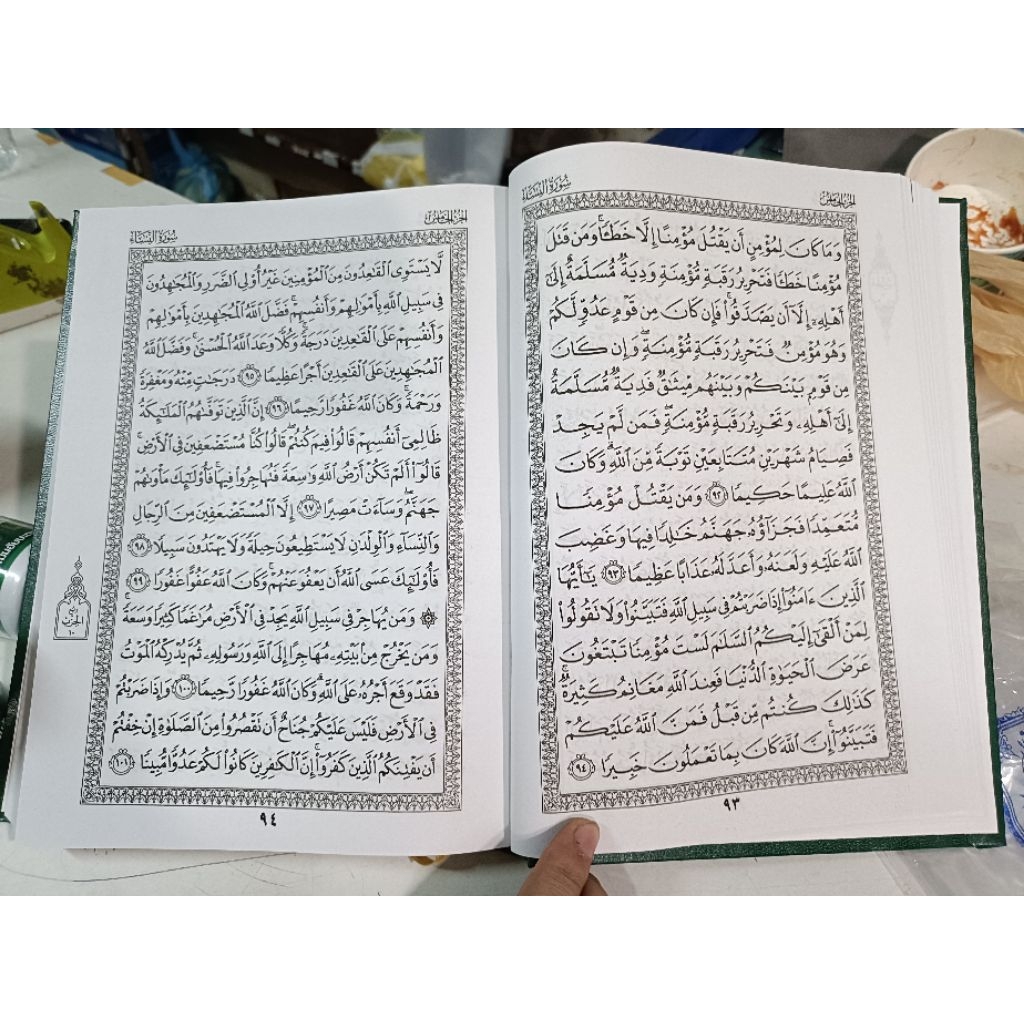 سُورَةُ النِّسَاءِ
الجزء الخامس
وَمَا كَانَ لِمُؤْمِنٍ أَن يَقْتُلَ مُؤْمِنًا إِلَّا خَطَـًٔا ۚ وَمَن قَتَلَ
مُؤْمِنًا خَطَـًٔا فَتَحْرِيرُ رَقَبَةٍ مُّؤْمِنَةٍ وَدِيَةٌ مُّسَلَّمَةٌ إِلَىٰٓ
أَهْلِهِۦٓ إِلَّآ أَن يَصَّدَّقُوا۟ ۚ فَإِن كَانَ مِن قَوْمٍ عَدُوٍّ لَّكُمْ
وَهُوَ مُؤْمِنٌ فَتَحْرِيرُ رَقَبَةٍ مُّؤْمِنَةٍ ۖ وَإِن كَانَ
مِن قَوْمٍۭ بَيْنَكُمْ وَبَيْنَهُم مِّيثَـٰقٌ فَدِيَةٌ مُّسَلَّمَةٌ
إِلَىٰٓ أَهْلِهِۦ وَتَحْرِيرُ رَقَبَةٍ مُّؤْمِنَةٍ ۖ فَمَن لَّمْ يَجِدْ
فَصِيَامُ شَهْرَيْنِ مُتَتَابِعَيْنِ تَوْبَةً مِّنَ ٱللَّهِ ۗ وَكَانَ
ٱللَّهُ عَلِيمًا حَكِيمًا ٩٢ وَمَن يَقْتُلْ مُؤْمِنًا
مُّتَعَمِّدًا فَجَزَآؤُهُۥ جَهَنَّمُ خَـٰلِدًا فِيهَا وَغَضِبَ
ٱللَّهُ عَلَيْهِ وَلَعَنَهُۥ وَأَعَدَّ لَهُۥ عَذَابًا عَظِيمًا ٩٣ يَـٰٓأَيُّهَا
ٱلَّذِينَ ءَامَنُوٓا۟ إِذَا ضَرَبْتُمْ فِى سَبِيلِ ٱللَّهِ فَتَبَيَّنُوا۟ وَلَا تَقُولُوا۟
لِمَنْ أَلْقَىٰٓ إِلَيْكُمُ ٱلسَّلَـٰمَ لَسْتَ مُؤْمِنًا تَبْتَغُونَ
عَرَضَ ٱلْحَيَوٰةِ ٱلدُّنْيَا فَعِندَ ٱللَّهِ مَغَانِمُ كَثِيرَةٌ ۚ
كَذَٰلِكَ كُنتُم مِّن قَبْلُ فَمَنَّ ٱللَّهُ عَلَيْكُمْ
فَتَبَيَّنُوٓا۟ ۚ إِنَّ ٱللَّهَ كَانَ بِمَا تَعْمَلُونَ خَبِيرًا ٩٤
٩٣
الجزء الخامس
سُورَةُ النِّسَاءِ
لَّا يَسْتَوِى ٱلْقَـٰعِدُونَ مِنَ ٱلْمُؤْمِنِينَ غَيْرُ أُو۟لِى ٱلضَّرَرِ وَٱلْمُجَـٰهِدُونَ
فِى سَبِيلِ ٱللَّهِ بِأَمْوَٰلِهِمْ وَأَنفُسِهِمْ ۚ فَضَّلَ ٱللَّهُ ٱلْمُجَـٰهِدِينَ بِأَمْوَٰلِهِمْ
وَأَنفُسِهِمْ عَلَى ٱلْقَـٰعِدِينَ دَرَجَةً ۚ وَكُلًّا وَعَدَ ٱللَّهُ ٱلْحُسْنَىٰ ۚ وَفَضَّلَ ٱللَّهُ
ٱلْمُجَـٰهِدِينَ عَلَى ٱلْقَـٰعِدِينَ أَجْرًا عَظِيمًا ٩٥ دَرَجَـٰتٍ مِّنْهُ وَمَغْفِرَةً
وَرَحْمَةً ۚ وَكَانَ ٱللَّهُ غَفُورًا رَّحِيمًا ٩٦ إِنَّ ٱلَّذِينَ تَوَفَّىٰهُمُ ٱلْمَلَـٰٓئِكَةُ
ظَالِمِىٓ أَنفُسِهِمْ قَالُوا۟ فِيمَ كُنتُمْ ۖ قَالُوا۟ كُنَّا مُسْتَضْعَفِينَ فِى ٱلْأَرْضِ ۚ
قَالُوٓا۟ أَلَمْ تَكُنْ أَرْضُ ٱللَّهِ وَٰسِعَةً فَتُهَاجِرُوا۟ فِيهَا ۚ فَأُو۟لَـٰٓئِكَ مَأْوَىٰهُمْ
جَهَنَّمُ ۖ وَسَآءَتْ مَصِيرًا ٩٧ إِلَّا ٱلْمُسْتَضْعَفِينَ مِنَ ٱلرِّجَالِ
وَٱلنِّسَآءِ وَٱلْوِلْدَٰنِ لَا يَسْتَطِيعُونَ حِيلَةً وَلَا يَهْتَدُونَ سَبِيلًا ٩٨
فَأُو۟لَـٰٓئِكَ عَسَى ٱللَّهُ أَن يَعْفُوَ عَنْهُمْ ۚ وَكَانَ ٱللَّهُ عَفُوًّا غَفُورًا ٩٩
۞ وَمَن يُهَاجِرْ فِى سَبِيلِ ٱللَّهِ يَجِدْ فِى ٱلْأَرْضِ مُرَٰغَمًا كَثِيرًا وَسَعَةً ۚ
وَمَن يَخْرُجْ مِنۢ بَيْتِهِۦ مُهَاجِرًا إِلَى ٱللَّهِ وَرَسُولِهِۦ ثُمَّ يُدْرِكْهُ ٱلْمَوْتُ
فَقَدْ وَقَعَ أَجْرُهُۥ عَلَى ٱللَّهِ ۗ وَكَانَ ٱللَّهُ غَفُورًا رَّحِيمًا ١٠٠ وَإِذَا ضَرَبْتُمْ
فِى ٱلْأَرْضِ فَلَيْسَ عَلَيْكُمْ جُنَاحٌ أَن تَقْصُرُوا۟ مِنَ ٱلصَّلَوٰةِ إِنْ خِفْتُمْ
أَن يَفْتِنَكُمُ ٱلَّذِينَ كَفَرُوٓا۟ ۚ إِنَّ ٱلْكَـٰفِرِينَ كَانُوا۟ لَكُمْ عَدُوًّا مُّبِينًا ١٠١
الحزب
١٠
٩٤